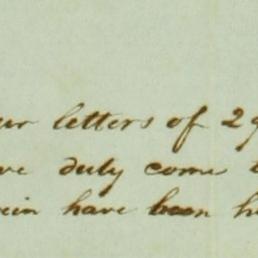 ur letters of 29
ve duly come t
ein have been h